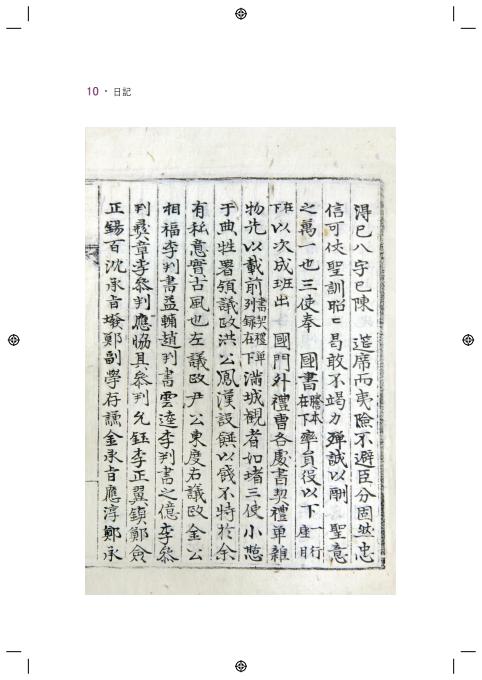 10 · 日記
得已八字已陳 筵席而夷險不避臣分固然忠
信可仗聖訓昭〻曷敢不竭力殫誠以酬 聖意
之萬一也三使奉 國書謄本在下率員役以下一行座目
在下以次成班出 國門外禮曹各處書契禮單雜
物先以載前書契禮單列錄在下滿城觀者如堵三使小憩
于典牲署領議政洪公鳳漢設饌以餞不特於余
有私意實古風也左議政尹公東度右議政金公
相福李判書益輔趙判書雲逵李判書之億李參
判彛章李參判應協具參判允鈺李正翼鎮鄭僉
正錫百沈承旨墢鄭副學存謙金承旨應淳鄭承